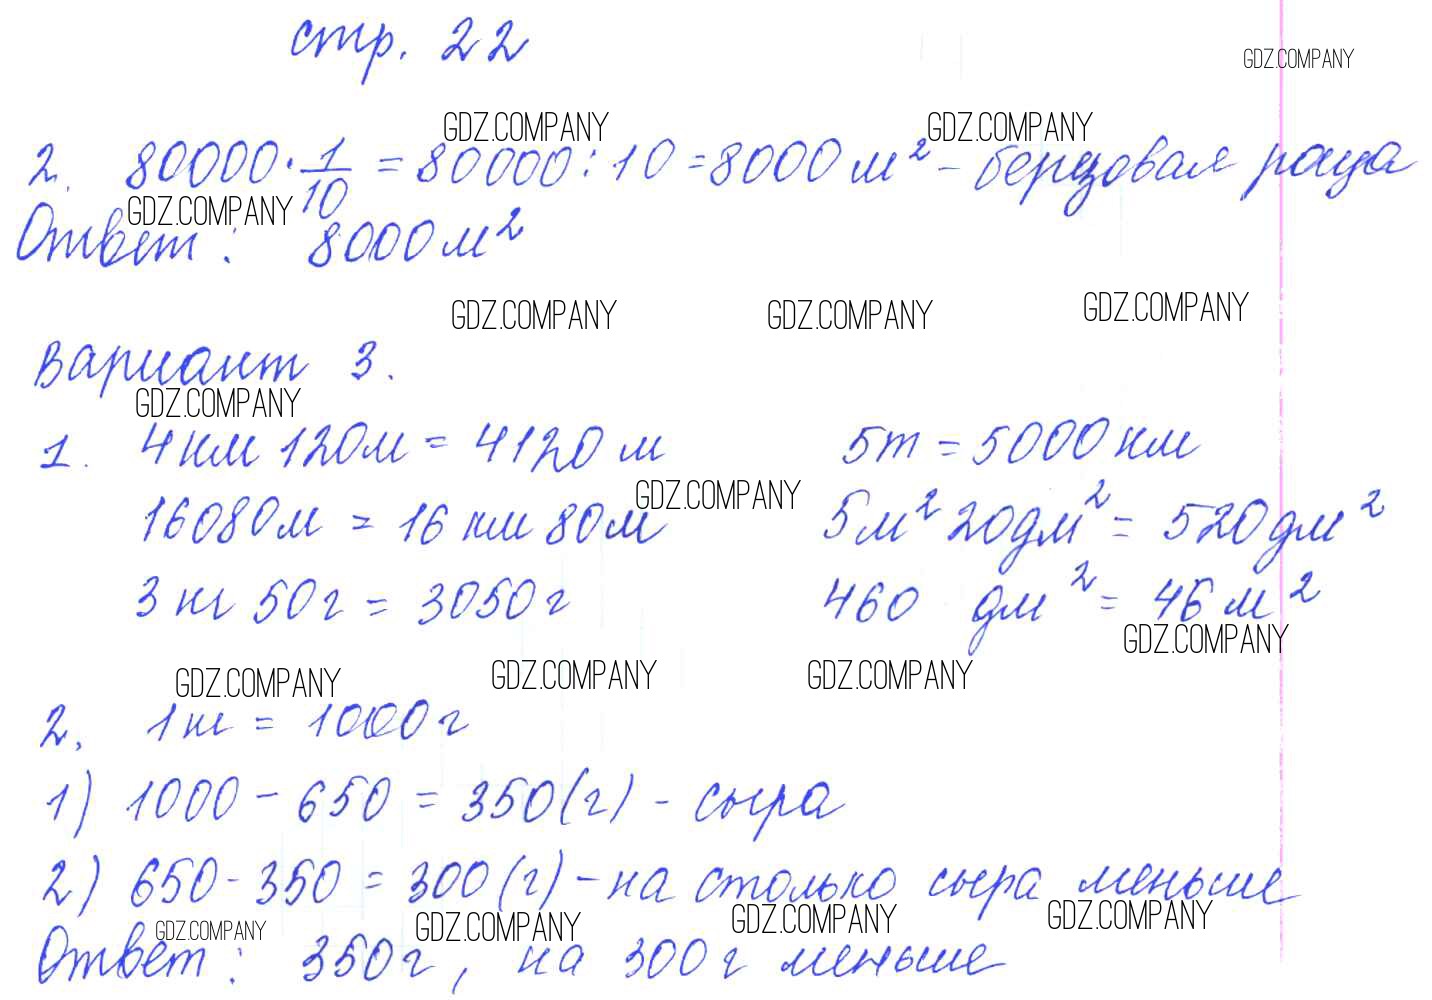 стр. 22
GDZ.COMPANY
GDZ.COMPANY GDZ.COMPANY
2. 80000 · 1/10 = 80000 : 10 = 8000 м² - березовая роща
GDZ.COMPANY
Ответ: 8000 м²
GDZ.COMPANY GDZ.COMPANY GDZ.COMPANY
Вариант 3.
GDZ.COMPANY
1. 4 км 120 м = 4120 м 5 т = 5000 км
GDZ.COMPANY
16080 м = 16 км 80 м 5 м² 20 дм² = 520 дм²
3 кг 50 г = 3050 г 460 дм² = 46 м²
GDZ.COMPANY
GDZ.COMPANY GDZ.COMPANY GDZ.COMPANY
2. 1 кг = 1000 г
1) 1000 - 650 = 350 (г) - сыра
2) 650 - 350 = 300 (г) - на столько сыра меньше
GDZ.COMPANY GDZ.COMPANY GDZ.COMPANY GDZ.COMPANY
Ответ: 350 г, на 300 г меньше